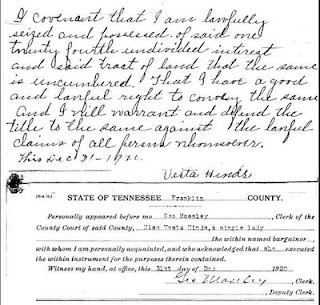 I covenant that I am lawfully
seized and possessed of said one
twenty fourth undivided interest
and said tract of land that the same
is uncumbered. That I have a good
and lawful right to convey the same
And I will warrant and defend the
title to the same against the lawful
claims of all persons whomsoever.
This Dec 31-1920.
Vesta Hinds
STATE OF TENNESSEE Franklin COUNTY.
Personally appeared before me Geo Moseley, Clerk of the
County Court of said County, Miss Vesta Hinds, a single lady
the within named bargainor
with whom I am personally acquainted, and who acknowledged that She executed
the within instrument for the purposes therein contained.
Witness my hand, at office, this 31st day of Dec 1920
Geo Moseley, Clerk.
, Deputy Clerk.